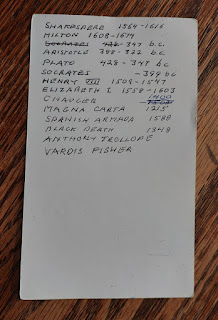 SHAKESPERE 1564-1616
MILTON 1608-1674
SOCRATES 347 b.c.
ARISTOTLE b.c
PLATO 428-347 b.c
SOCRATES -399 bc
HENRY VIII 1509-1547
ELIZABETH I
CHAUCER 1400
MAGNA CARTA 1215
SPANISH ARMADA 1588
BLACK DEATH 1349
ANTHONY TROLLOPE
VARDIS FISHER